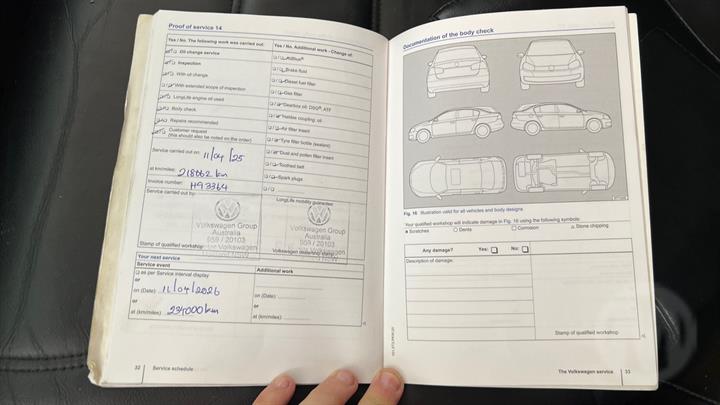 Proof of service 14
Yes / No. The following work was carried out:
Oil change service
Inspection
With oil change
With extended scope of inspection
LongLife engine oil used
Body check
Repairs recommended
Customer request
(this should also be noted on the order)
Service carried out on: 11/04/25
at km/miles: 218062 km
Invoice number: H93364
Service carried out by:
Volkswagen Group
Australia
559 / 20103
Stamp of qualified workshop
Yes / No. Additional work - Change of:
AdBlue®
Brake fluid
Diesel fuel filter
Gas filter
Gearbox oil: DSG®, ATF
Haldex coupling: oil
Air filter insert
Tyre filler bottle (sealant)
Dust and pollen filter insert
Toothed belt
Spark plugs
LongLife mobility guarantee:
Volkswagen Group
Australia
559 / 20103
Volkswagen dealership stamp
Your next service
Service event
as per Service interval display
or
on (Date): 11/04/2026
or
at (km/miles): 234000 km
Additional work
on (Date):
or
at (km/miles):
32 Service schedule
Documentation of the body check
Fig. 16 Illustration valid for all vehicles and body designs.
Your qualified workshop will indicate damage in Fig. 16 using the following symbols:
Scratches Dents Corrosion Stone chipping
Any damage? Yes: No:
Description of damage:
Stamp of qualified workshop
The Volkswagen service 33